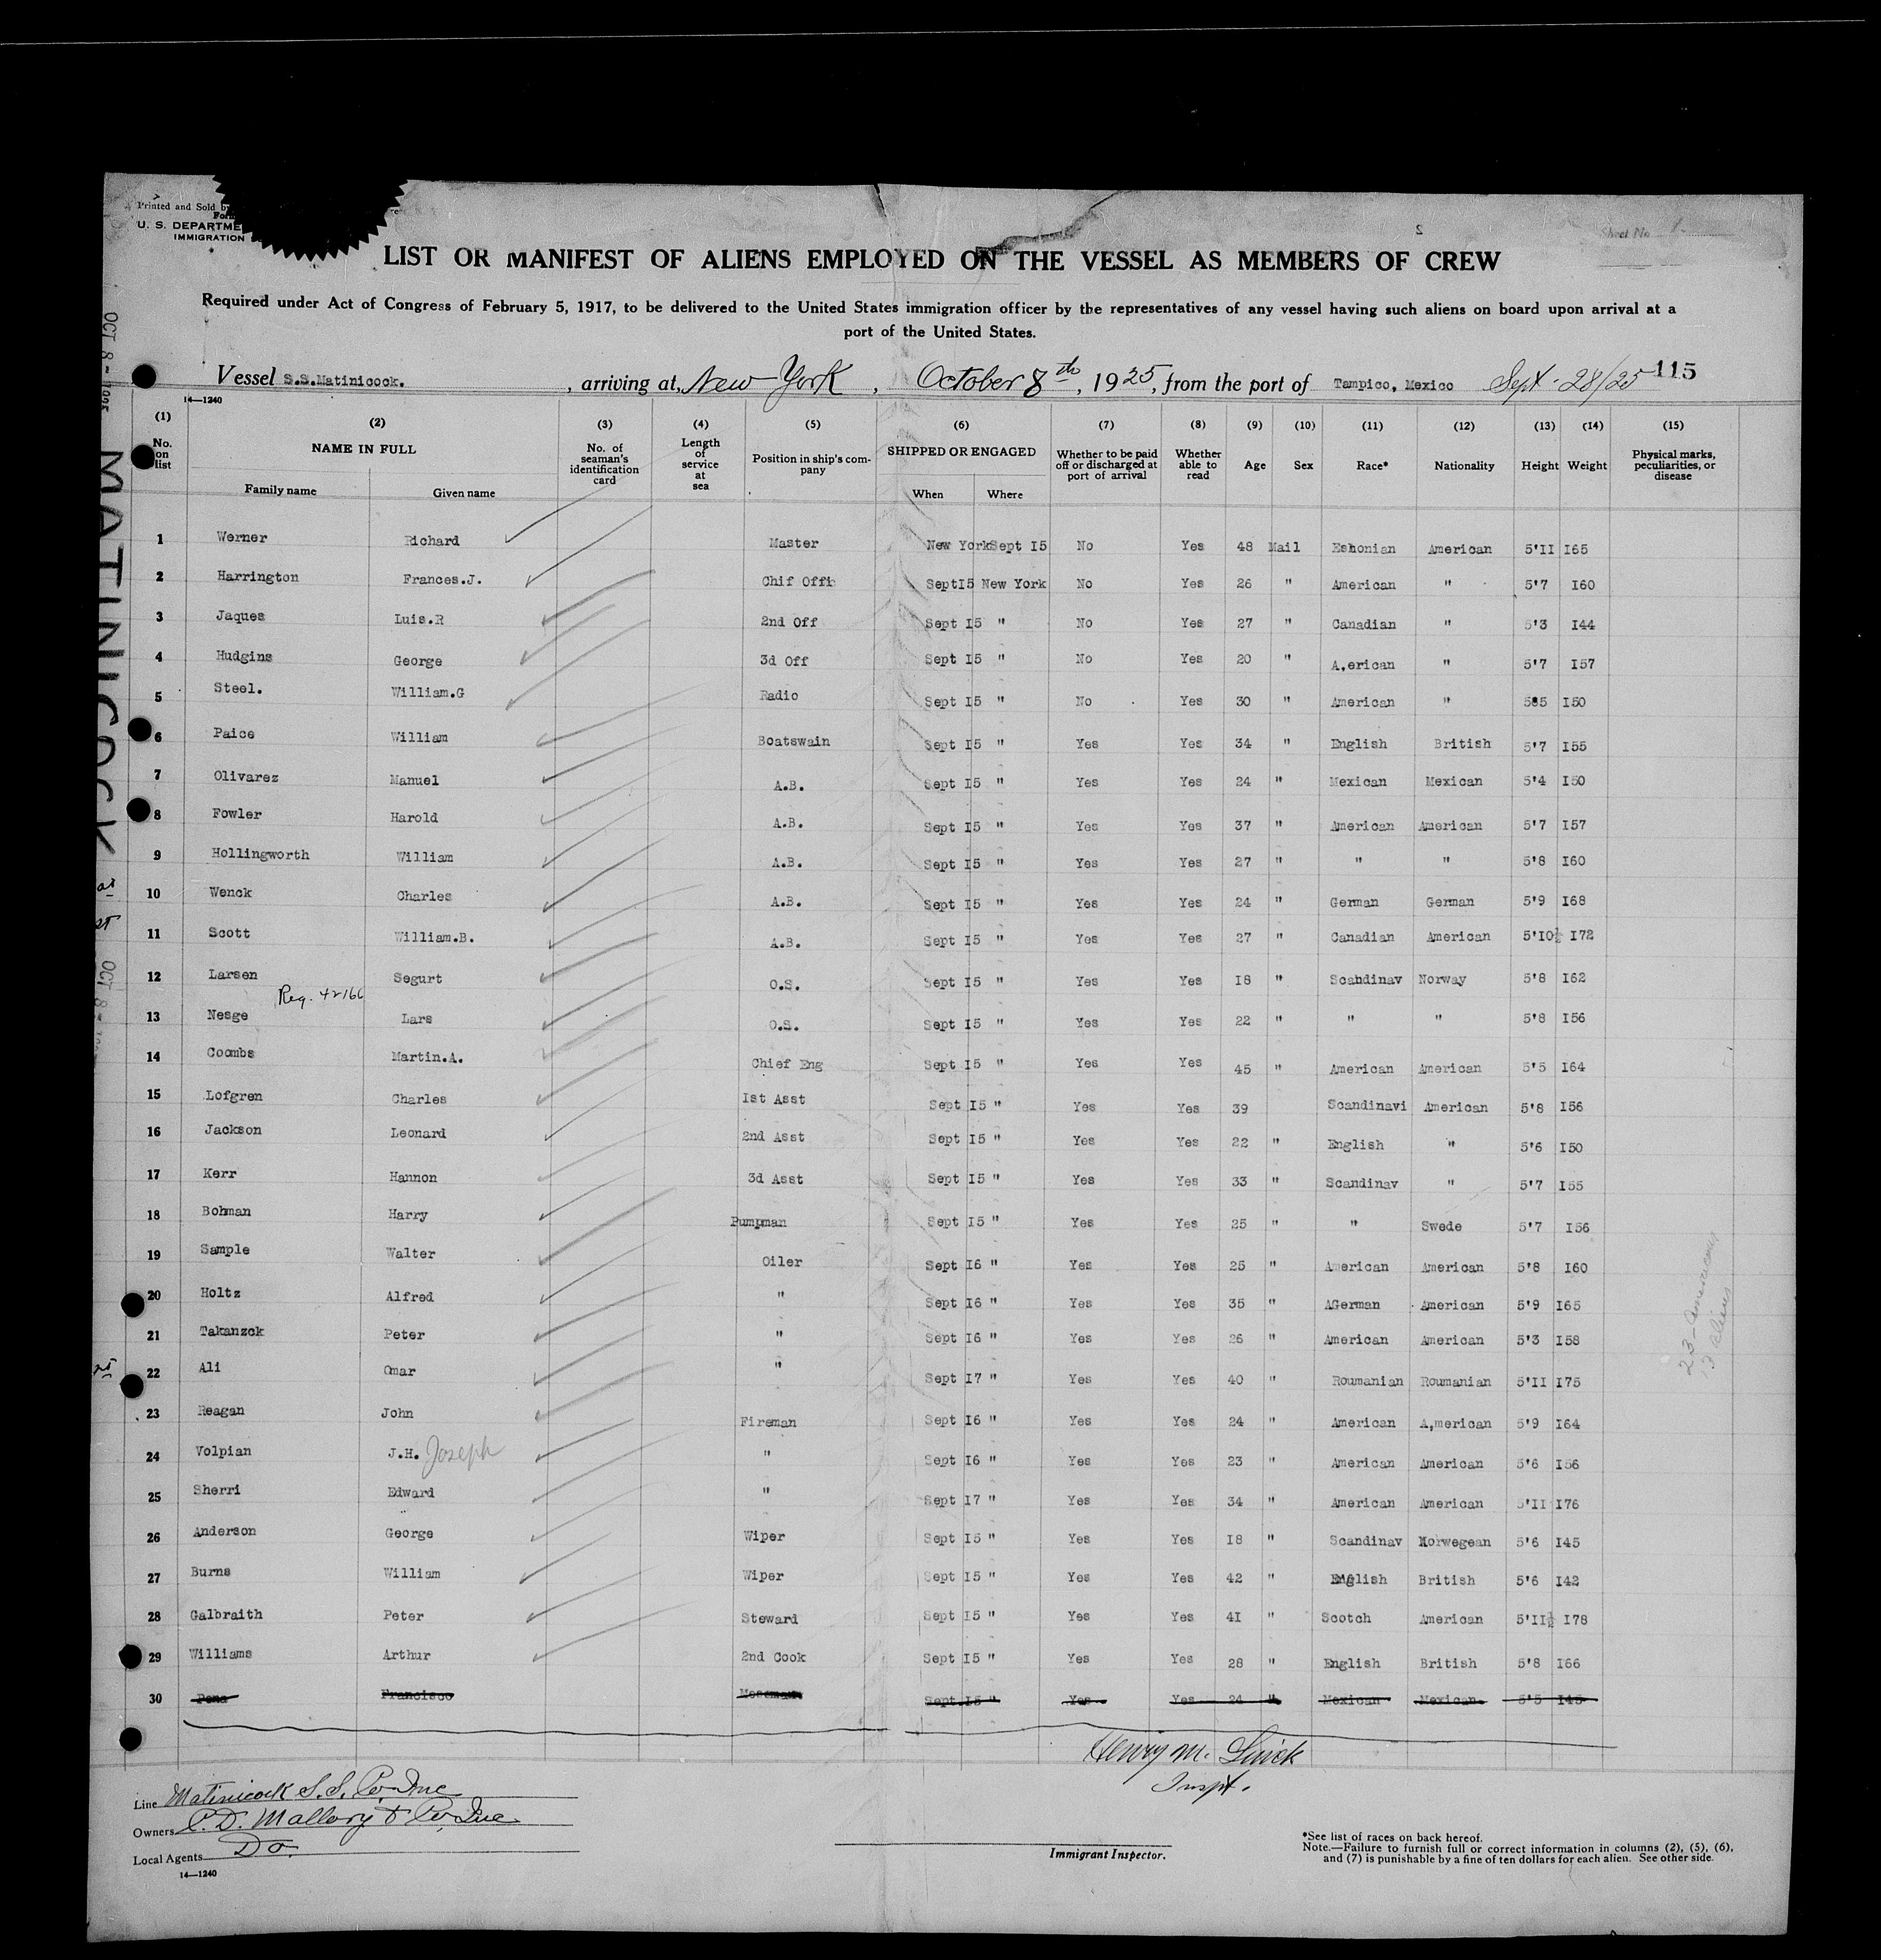 Printed and Sold by
For
U. S. DEPARTME
IMMIGRATION
2
Sheet No 1
LIST OR MANIFEST OF ALIENS EMPLOYED ON THE VESSEL AS MEMBERS OF CREW
Required under Act of Congress of February 5, 1917, to be delivered to the United States immigration officer by the representatives of any vessel having such aliens on board upon arrival at a
port of the United States.
Vessel S.S.Matinicock. , arriving at, New York , October 8th, 1925, from the port of Tampico, Mexico Sept. 28/25 115
14—1240
(1) (2) (3) (4) (5) (6) (7) (8) (9) (10) (11) (12) (13) (14) (15)
No. on list NAME IN FULL Family name Given name No. of seaman's identification card Length of service at sea Position in ship's company SHIPPED OR ENGAGED When Where Whether to be paid off or discharged at port of arrival Whether able to read Age Sex Race* Nationality Height Weight Physical marks, peculiarities, or disease
1 Werner Richard Master New York Sept I5 No Yes 48 Mail Eshonian American 5'II I65
2 Harrington Frances.J. Chif Offi SeptI5 New York No Yes 26 " American " 5'7 I60
3 Jaques Luis.R 2nd Off Sept I5 " No Yes 27 " Canadian " 5'3 I44
4 Hudgins George 3d Off Sept I5 " No Yes 20 " A,erican " 5'7 I57
5 Steel. William.G Radio Sept I5 " No Yes 30 " American " 585 I50
6 Paice William Boatswain Sept I5 " Yes Yes 34 " English British 5'7 I55
7 Olivarez Manuel A.B. Sept I5 " Yes Yes 24 " Mexican Mexican 5'4 I50
8 Fowler Harold A.B. Sept I5 " Yes Yes 37 " American American 5'7 I57
9 Hollingworth William A.B. Sept I5 " Yes Yes 27 " " " 5'8 I60
10 Wenck Charles A.B. Sept I5 " Yes Yes 24 " German German 5'9 I68
11 Scott William.B. A.B. Sept I5 " Yes Yes 27 " Canadian American 5'IO½ I72
12 Larsen Segurt O.S. Sept I5 " Yes Yes I8 " Scahdinav Norway 5'8 I62
Reg. 42166
13 Nesge Lars O.S. Sept I5 " Yes Yes 22 " " " 5'8 I56
14 Coombs Martin.A. Chief Eng Sept I5 " Yes Yes 45 " American American 5'5 I64
15 Lofgren Charles Ist Asst Sept I5 " Yes Yes 39 Scandinavi American 5'8 I56
16 Jackson Leonard 2nd Asst Sept I5 " Yes Yes 22 " English " 5'6 I50
17 Kerr Hannon 3d Asst Sept I5 " Yes Yes 33 " Scandinav " 5'7 I55
18 Bohman Harry Pumpman Sept I5 " Yes Yes 25 " " Swede 5'7 I56
19 Sample Walter Oiler Sept I6 " Yes Yes 25 " American American 5'8 I60
20 Holtz Alfred " Sept I6 " Yes Yes 35 " AGerman American 5'9 I65
21 Takanzck Peter " Sept I6 " Yes Yes 26 " American American 5'3 I58
22 Ali Omar " Sept I7 " Yes Yes 40 " Roumanian Roumanian 5'II I75
23 Reagan John Fireman Sept I6 " Yes Yes 24 " American A,merican 5'9 I64
24 Volpian J.H. Joseph " Sept I6 " Yes Yes 23 " American American 5'6 I56
25 Sherri Edward " Sept I7 " Yes Yes 34 " American American 5'II I76
26 Anderson George Wiper Sept I5 " Yes Yes I8 " Scandinav Norwegean 5'6 I45
27 Burns William Wiper Sept I5 " Yes Yes 42 " English British 5'6 I42
28 Galbraith Peter Steward Sept I5 " Yes Yes 4I " Scotch American 5'II½ I78
29 Williams Arthur 2nd Cook Sept I5 " Yes Yes 28 " English British 5'8 I66
30 Pena Francisco Messman Sept I5 " Yes Yes 24 " Mexican Mexican 5'5 I45
Henry M. Quick
Inspt.
Line Matinicock S.S. Co. Inc
Owners C. D. Mallory & Co, Inc
Local Agents Do.
14—1240
Immigrant Inspector.
*See list of races on back hereof.
Note.—Failure to furnish full or correct information in columns (2), (5), (6),
and (7) is punishable by a fine of ten dollars for each alien. See other side.
OCT 8 - 1925
MATINICOCK
OCT 8
23 - Americans